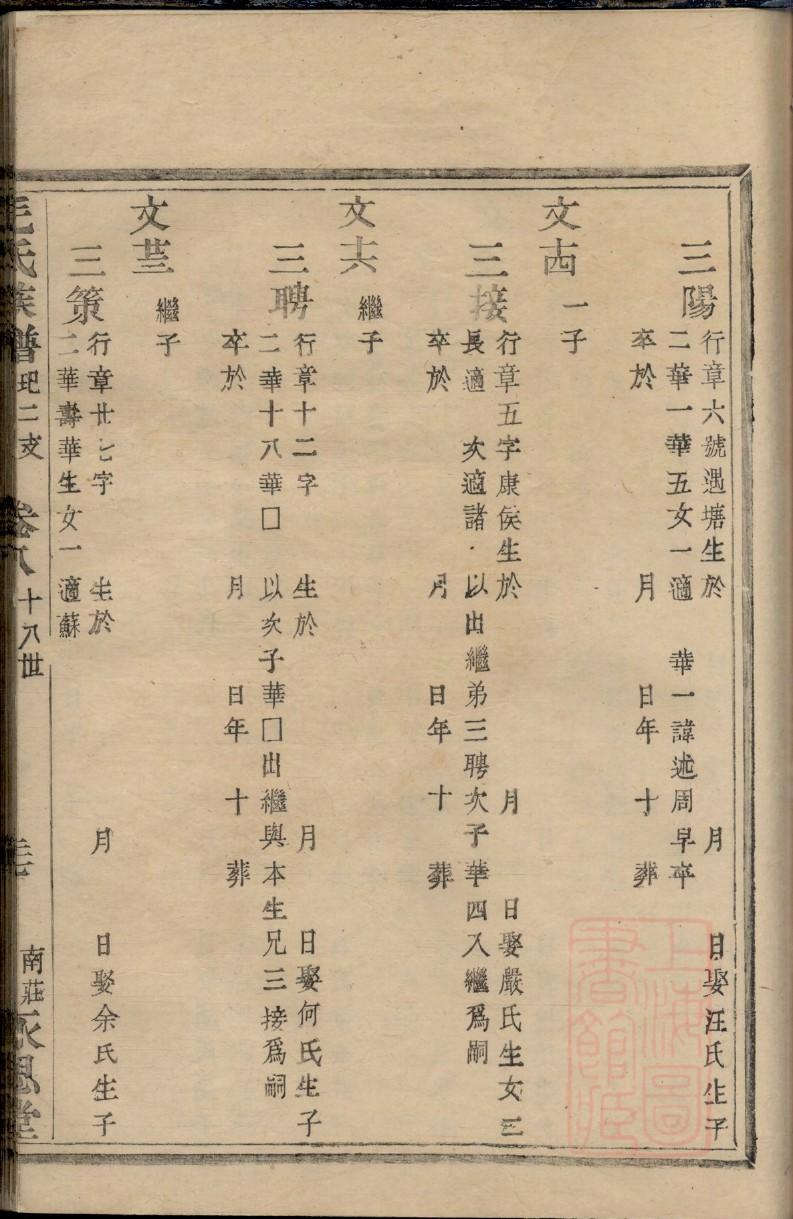 三陽
行章六號遇塘生於 月 日娶汪氏生子
二華一華五女一適 華一諱述周早卒
卒於 月 日年 十 葬
文 一子
三接
行章五字康侯生於 月 日娶嚴氏生女三
長適 次適諸 以出繼弟三聘次子華四入繼爲嗣
卒於 月 日年 十 葬
文 繼子
三聘
行章十二字 生於 月 日娶何氏生子
二華十八華囗 以次子華囗出繼與本生兄三接爲嗣
卒於 月 日年 十 葬
文 繼子
三策
行章廿七字 生於 月 日娶余氏生子
二華壽華生女一適蘇
毛氏族譜 二支 卷八 十八世 南莊永思堂
上海圖書館藏